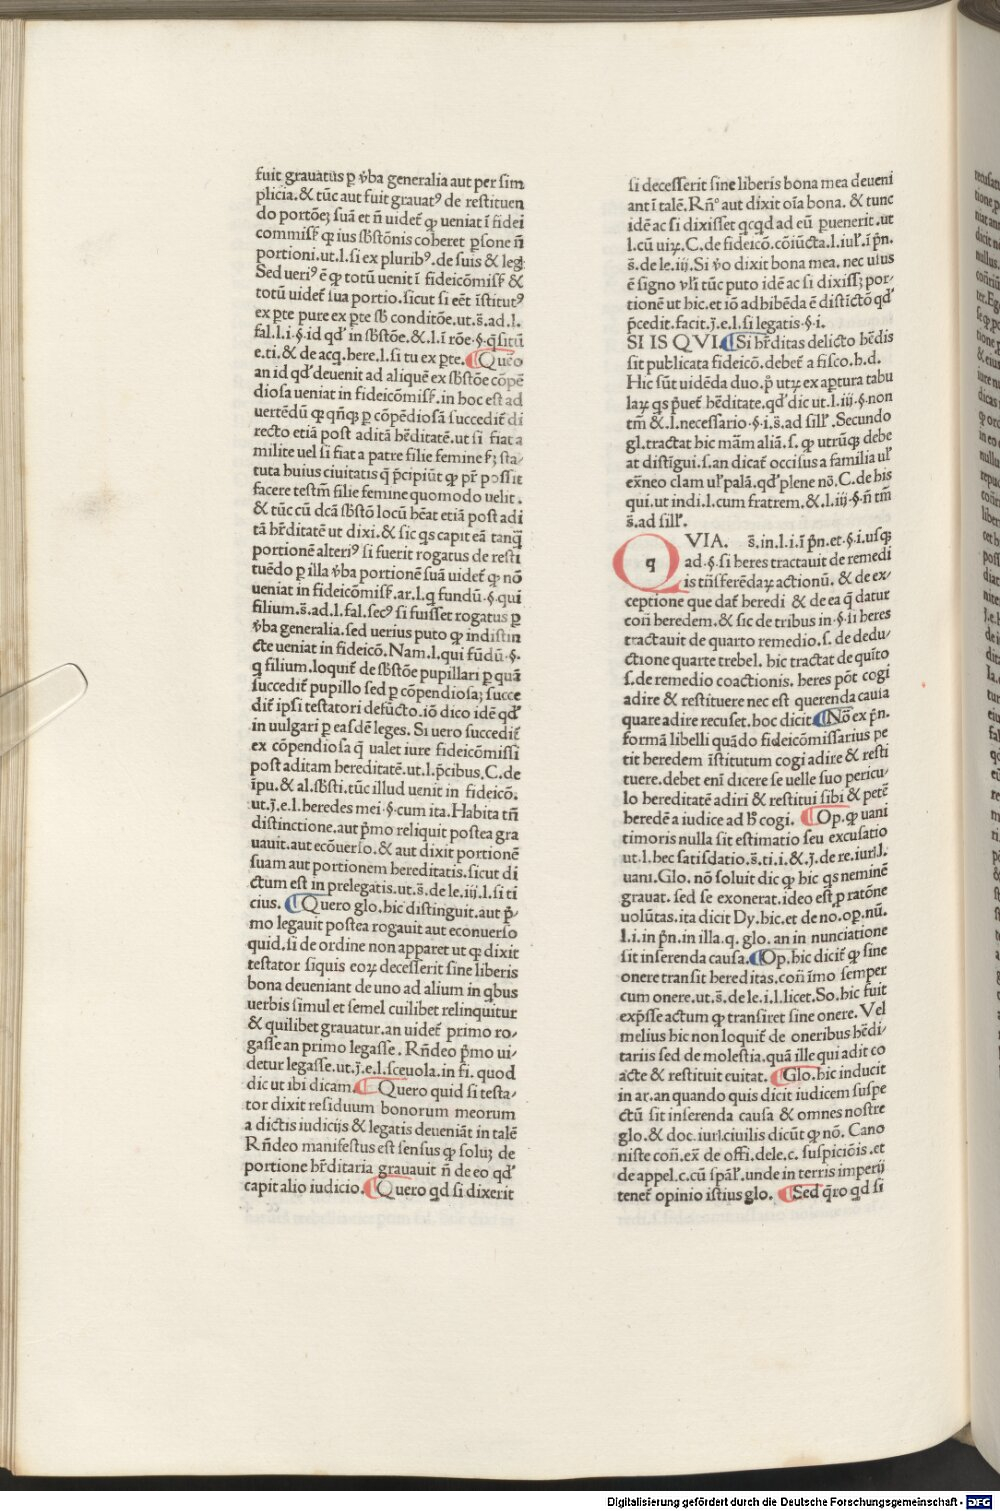 fuit grauatus ꝑ v̄ba generalia aut per sim
plicia.& tūc aut fuit grauatꝰ de restituen
do portōeꝫ suā et n̄ uidet̄ ꝙ ueniat ī fidei
commisſ. ꝙ ius sb̄stōnis coheret ꝑsone n̄
portioni.ut.l.si ex pluribꝰ.de suis & leg.
Sed ueriꝰ ē ꝙ totū uenit ī fideicōmisſ. &
totū uidet̄ sua portio.sicut si eēt īstitutꝰ
ex ꝑte pure ex ꝑte sb̄ conditōe.ut.s̄.ad.l.
fal.l.i.§.id qd' in sb̄stōe.&.l.ī rōe.§.q̄sitū
e.ti.& de acq.here.l.si tu ex ꝑte. ¶Quero
an id qd' deuenit ad aliquē ex sb̄stōe cōpē
diosa ueniat in fideicōmisſ.in hoc est ad
uertēdū ꝙ qn̄qꝫ ꝑ cōpēdiosā succedit̄ di
recto etiā post aditā hēditatē.ut si fiat a
milite uel si fiat a patre filie femine f;sta/
tuta huius ciuitatis q̄ p̄cipiūt ꝙ pr̄ possit
facere testm̄ filie femine quomodo uelit.
& tūc cū dcā sb̄stō locū hēat etiā post adi
tā hr̄ditatē ut dixi.& sic qs capit eā tanq̄
portionē alteriꝰ si fuerit rogatus de resti
tuēdo ꝑ illa v̄ba portionē suā uidet̄ ꝙ nō
ueniat in fideicōmisſ.ar.l.q fundū.§.qui
filium.s̄.ad.l.fal.secꝰ si fuisset rogatus ꝑ
v̄ba generalia.sed uerius puto ꝙ indistin
cte ueniat in fideicō.Nam.l.qui fūdū.§.
q filium.loquit̄ de sb̄stōe pupillari ꝑ quā
succedit̄ pupillo sed ꝑ cōpendiosaꝫ succe
dit̄ ipsi testatori defūcto.iō dico idē qd'
in uulgari ꝑ easdē leges. Si uero succedit̄
ex cōpendiosa q̄ ualet iure fideicōmissi
post aditam hereditatē.ut.l.p̄cibus.C.de
īpu.& al.sb̄sti.tūc illud uenit in fideicō.
ut.j̄.e.l.heredes mei.§.cum ita.Habita tn̄
distinctione.aut p̄mo reliquit postea gra
uauit.aut ecōuerso.& aut dixit portionē
suam aut portionem hereditatis.sicut di
ctum est in prelegatis.ut.s̄.de le.iij.l.si ti
cius. ¶Quero glo.hic distinguit.aut p̄/
mo legauit postea rogauit aut econuerso
quid.si de ordine non apparet ut ꝙ dixit
testator siquis eoꝝ decesserit sine liberis
bona deueniant de uno ad alium in qbus
uerbis simul et semel cuilibet relinquitur
& quilibet grauatur.an uidet̄ primo ro/
gasse an primo legasse. Rn̄deo p̄mo ui/
detur legasse.ut.j̄.e.l.sceuola.in fi. quod
dic ut ibi dicam. ¶Quero quid si testa/
tor dixit residuum bonorum meorum
a dictis iudicijs & legatis deueniāt in talē
Rn̄deo manifestus est sensus ꝙ soluꝫ de
portione hr̄ditaria grauauit n̄ de eo qd'
capit alio iudicio. ¶Quero qd si dixerit
si decesserit sine liberis bona mea deueni
ant ī talē. Rn̄° aut dixit oīa bona. & tunc
idē ac si dixisset qcqd ad eū ꝑuenerit.ut
l.cū uiꝝ.C.de fideicō.cōiūcta.l.iul'.ī p̄n.
s̄.de le.iij. Si v̄o dixit bona mea. nec usus
ē signo vl'i tūc puto idē ac si dixissꝫ por/
tionē ut hic.et iō adhibēda ē distictō qd'
p̄cedit.facit.j̄.e.l.si legatis.§.i.
SI IS QVI. ¶Si hr̄ditas delicto hēdis
sit publicata fideicō.debet̄ a fisco.h.d.
Hic sūt uidēda duo.p̄ utꝝ ex aꝑtura tabu
laꝝ qs p̄uet̄ hēditate.qd' dic ut.l.iij.§.non
tm̄ &.l.necessario.§.i.s̄.ad sill'. Secundo
gl.tractat hic mām aliā.s. ꝙ utrūqꝫ debe
at distīgui.s.an dicat̄ occisus a familia ul'
ex̄neo clam ul' palā.qd' plene nō.C.de his
qui.ut indi.l.cum fratrem.&.l.iij.§.n̄ tm̄
s̄.ad sill'.
QVIA. s̄.in.l.i.ī p̄n.et.§.i.usqꝫ
ad.§.si heres tractauit de remedi
is trāsferēdaꝝ actionū. & de ex/
ceptione que dat̄ heredi & de ea q̄ datur
con̄ heredem.& sic de tribus in.§.si heres
tractauit de quarto remedio.s. de dedu/
ctione quarte trebel. hic tractat de quīto
s.de remedio coactionis. heres pōt cogi
adire & restituere nec est querenda causa
quare adire recuset.hoc dicit ¶Nō ex p̄n.
formā libelli quādo fideicōmissarius pe
tit heredem īstitutum cogi adire & resti
tuere.debet enī dicere se uelle suo pericu/
lo hereditatē adiri & restitui sibi & petē
heredē a iudice ad h̄ cogi. ¶Op. ꝙ uani
timoris nulla sit estimatio seu excusatio
ut.l.hec satisdatio.s̄.ti.i.&.j̄.de re.iur.l.
uani. Glo. nō soluit dic ꝙ hic qs neminē
grauat. sed se exonerat.ideo est ꝑ ratōne
uolūtas.ita dicit Dy.hic.et de no.oꝑ.nū.
l.i.in p̄n.in illa.q. glo.an in nunciatione
sit inserenda causa. ¶Op.hic dicit̄ ꝙ sine
onere transit hereditas.con̄ īmo semper
cum onere.ut.s̄.de le.i.l.licet.So.hic fuit
exp̄sse actum ꝙ transiret sine onere. Vel
melius hic non loquit̄ de oneribus hēdi/
tariis sed de molestia.quā ille qui adit co
acte & restituit euitat. ¶Glo.hic inducit
in ar.an quando quis dicit iudicem suspe
ctū sit inserenda causa & omnes nostre
glo.& doc.iuri.ciuilis dicūt ꝙ nō. Cano
niste con̄.ex̄ de offi.dele.c. suspiciōis.et
de appel.c.cū spāl'.unde in terris imperij
tenet̄ opinio istius glo. ¶Sed q̄ro qd si
Digitalisierung gefördert durch die Deutsche Forschungsgemeinschaft - DFG